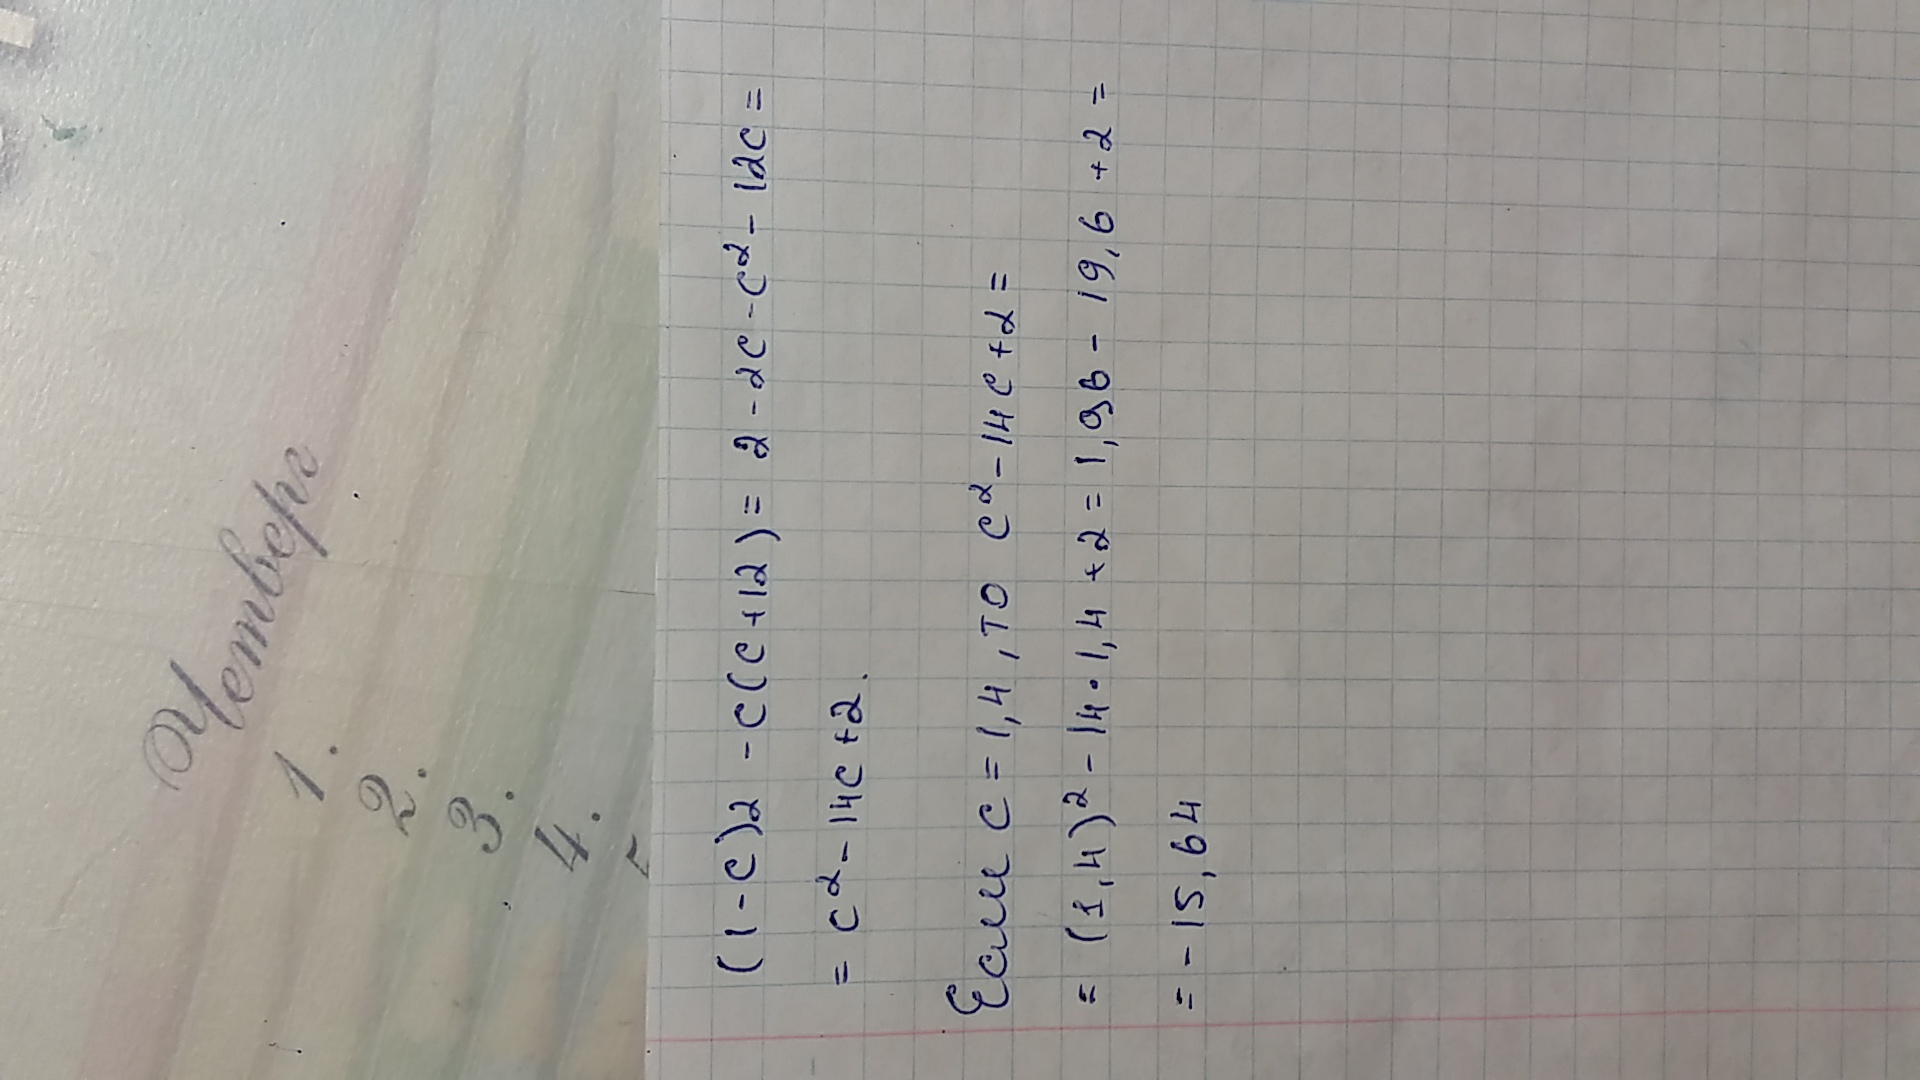 Четверг
1.
2.
3.
4.
(1-c)2 -c(c+12)= 2-2c-c²-12c=
= c²-14c+2.
Если c=1,4, то c²-14c+2=
= (1,4)²-14•1,4+2=1,96-19,6+2=
= -15,64